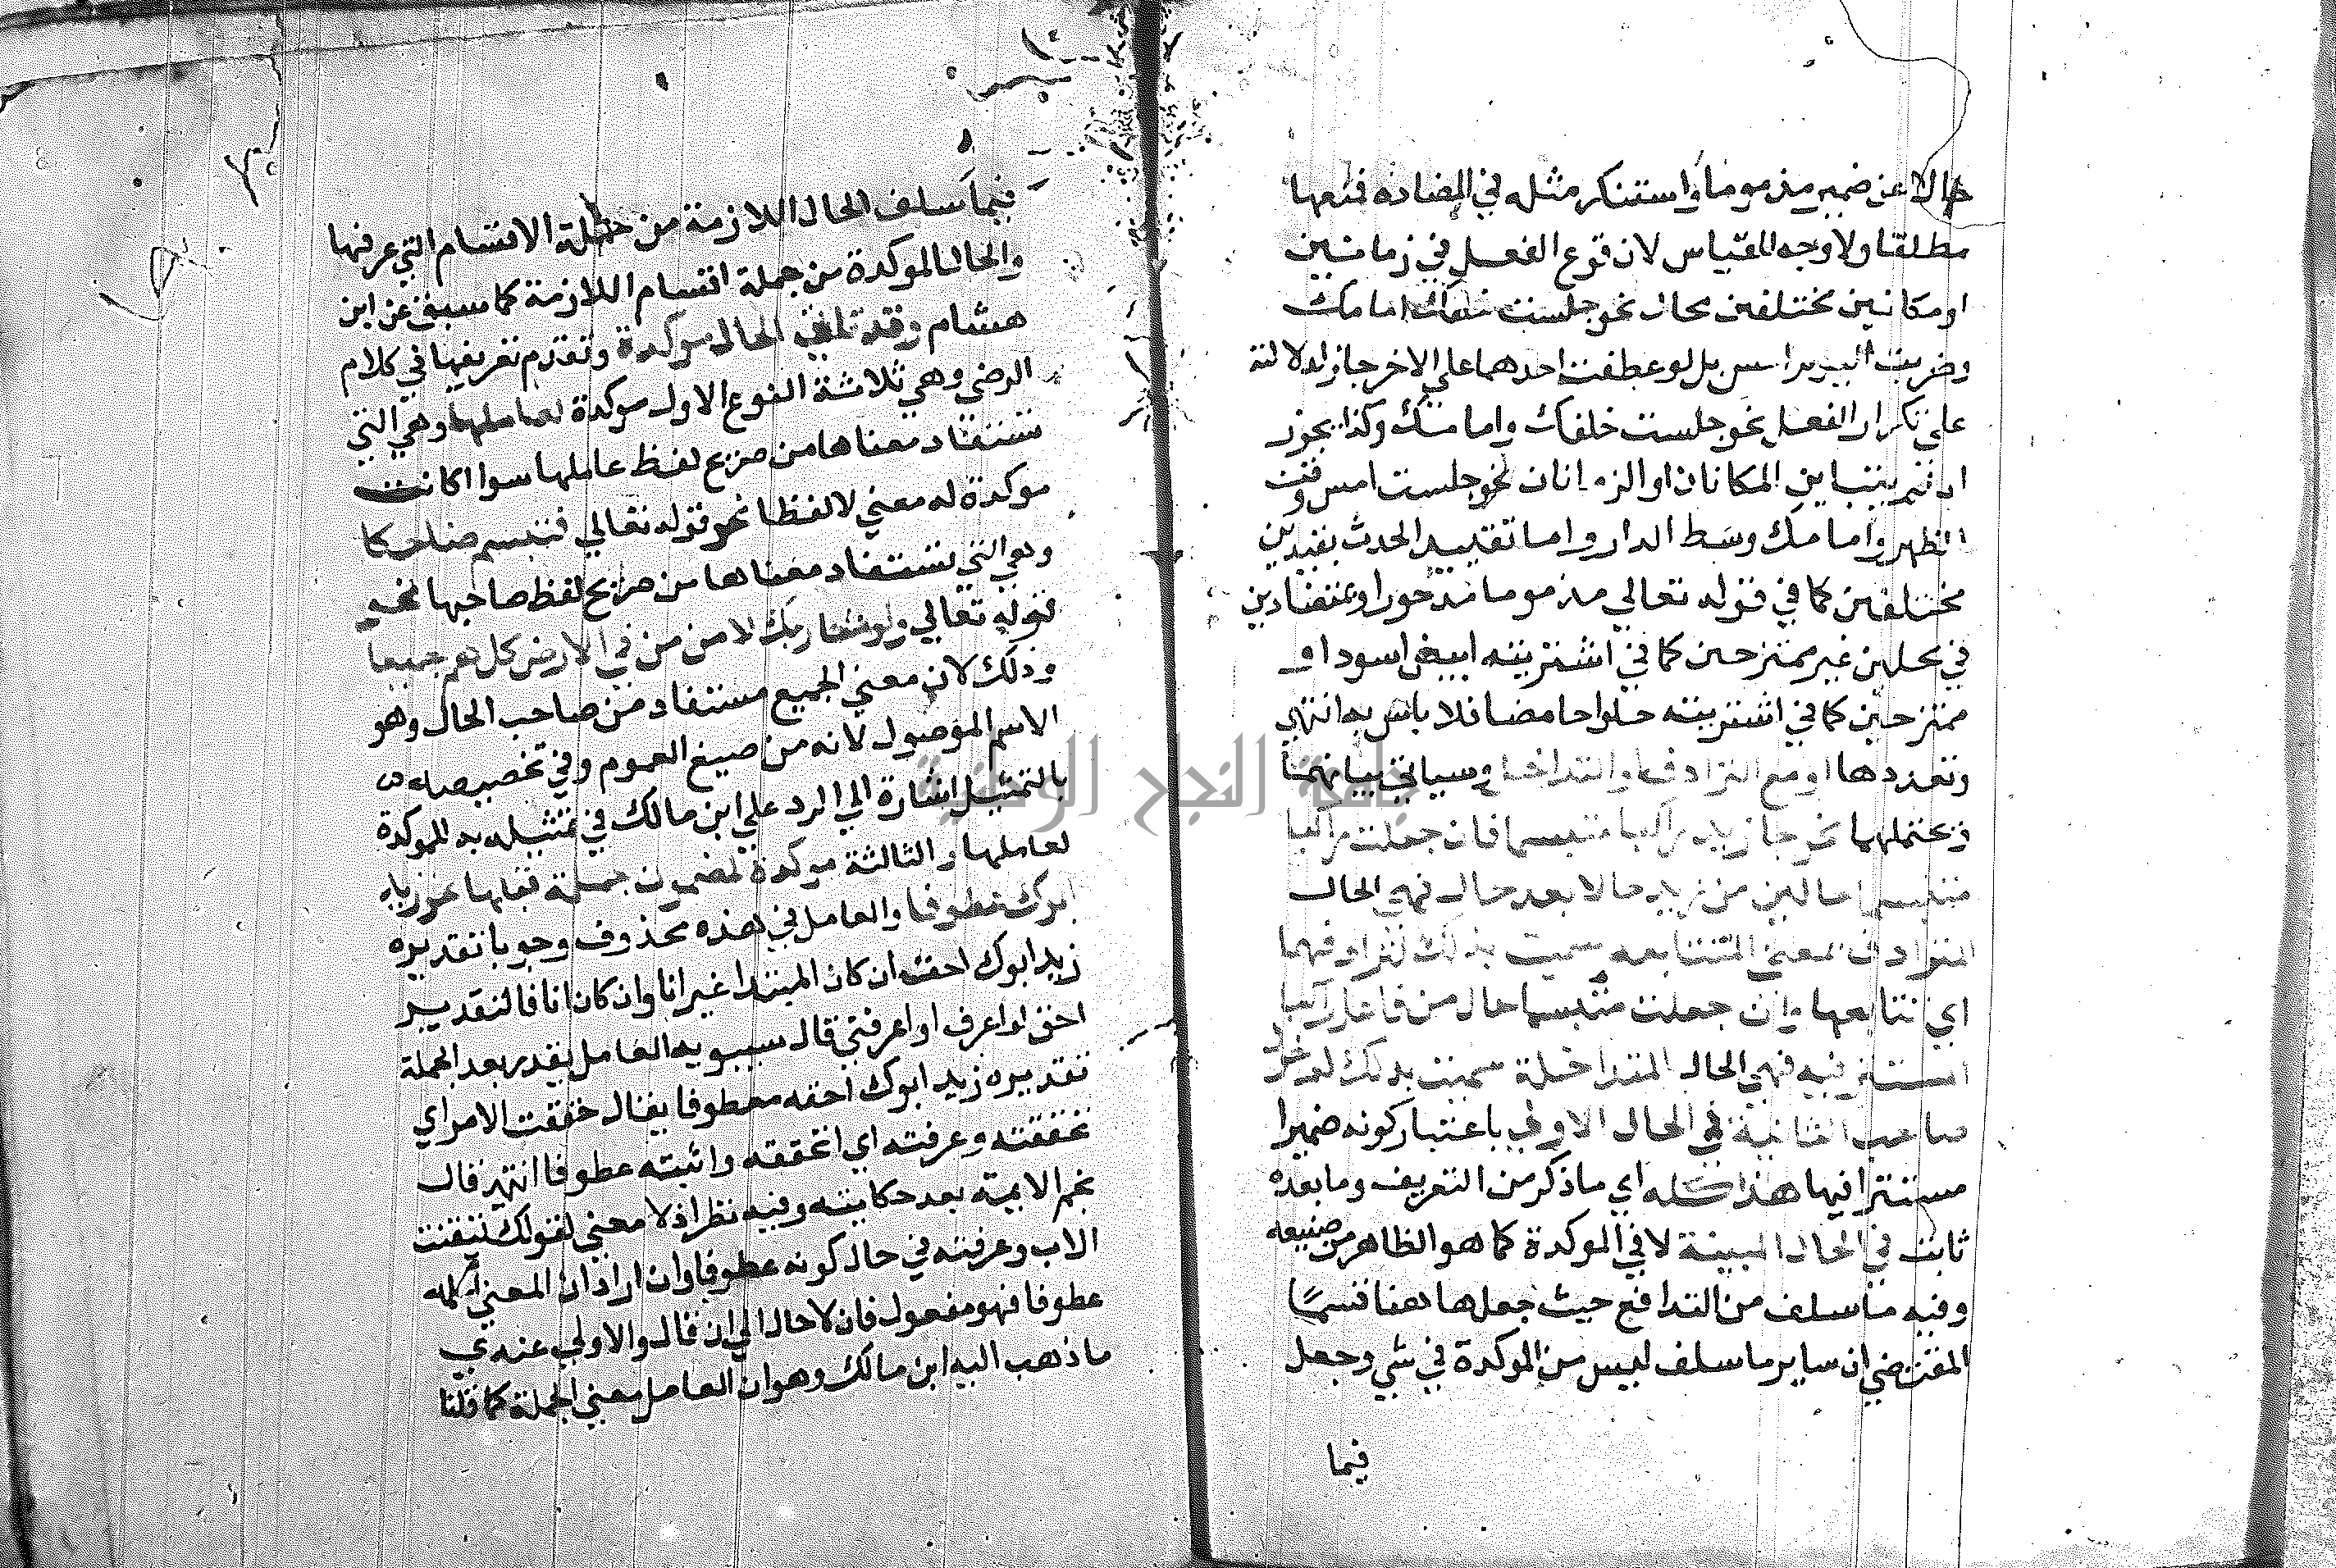 حالا عن ضمير مذموما واستنكر مثله في المضاده فمنعها
مطلقا ولا وجه للقياس لان وقوع الفعل في زمانين
او مكانين مختلفين محال نحو جلست خلفك امامك
وضربت اليوم امس بل لو عطفت احدهما علي الاخر جاز لدلالته
علي تكرار الفعل نحو جلست خلفك وامامك وكذا يجوز
ان لم يتباين المكانان او الزمانان نحو جلست امس وقت
الظهر وامامك وسط الدار واما تقييد الحدث بقيدين
مختلفين كما في قوله تعالي مذموما مدحورا او متضادين
في محلين غير ممتزجين كما في اشتريته ابيض اسود او
ممتزجين كما في اشتريته حلوا حامضا فلا باس به انتهي
وتعددها اما مع الترادف او التداخل وسياتي بيانهما
وتحتملهما نحو جا زيد راكبا متبسما فان جعلت راكبا
متبسما حالين من زيد حالا بعد حال فهي الحال
المترادف بمعني المتتابعه سميت بذلك لترادفهما
اي تتابعهما وان جعلت متبسما حال من فاعل راكبا
المستتر فيه فهي الحال المتداخلة سميت بذلك لدخول
صاحب الثانية في الحال الاولي باعتبار كونه ضميرا
مستترا فيها هذا كله اي ما ذكر من التعريف وما بعده
ثابت في الحال المبينة لا في الموكدة كما هو الظاهر من صنيعه
وفيه ما سلف من التدافع حيث جعلها هنا قسما
المقتضي ان ساير ما سلف ليس من الموكدة في شي وجعل
فيما
فيما سلف الحال اللازمة من جملة الاقسام التي عرفها
والحال الموكدة من جملة اقسام اللازمة كما سبق عن ابن
هشام وقد تاتي الحال موكدة وتقدم تعريفها في كلام
الرضي وهي ثلاثة النوع الاول موكدة لعاملها وهي التي
تستفاد معناها من صريح لفظ عاملها سوا اكانت
موكدة له معني لا لفظا نحو قوله تعالي فتبسم ضاحكا
وهي التي تستفاد معناها من صريح لفظ صاحبها نحو
قوله تعالي ولو شا ربك لامن من في الارض كلهم جميعا
وذلك لان معني الجميع مستفاد من صاحب الحال وهو
الاسم الموصول لانه من صيغ العموم وفي تخصيصه
بالتمثيل اشارة الي الرد علي ابن مالك في تمثيله به للموكدة
لعاملها والثالثة موكدة لمضمون جملة قبلها نحو زيد
ابوك عطوفا والعامل في هذه محذوف وجوبا تقديره
زيد ابوك احقه ان كان المبتدا غير انا وان كان انا فالتقدير
احق او اعرف او اعرفني قال سيبويه العامل يقدر بعد الجملة
تقديره زيد ابوك احقه عطوفا يقال حققت الامر اي
تحققته وعرفته اي اتحققه واثبته عطوفا انتهي قال
نجم الايمة بعد حكايته وفيه نظر اذ لا معني لقولك تيقنت
الاب وعرفته في حال كونه عطوفا وان اراد ان المعني اعلمه
عطوفا فهو مفعول ثان لا حال الي ان قال والاولي عندي
ما ذهب اليه ابن مالك وهو ان العامل معني الجملة كما قلنا
جامعة النجاح الوطنية